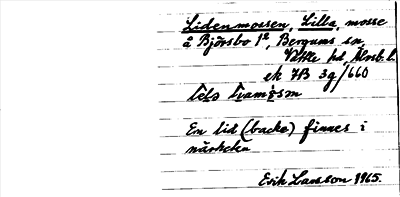 Lidenmossen, Lilla, mosse
å Björsbo 1², Bergums sn,
Vättle hd, Älvsb. l.
ek 7B 3g/660
En lid (backe) finnes i
närheten
Erik Larsson 1965.